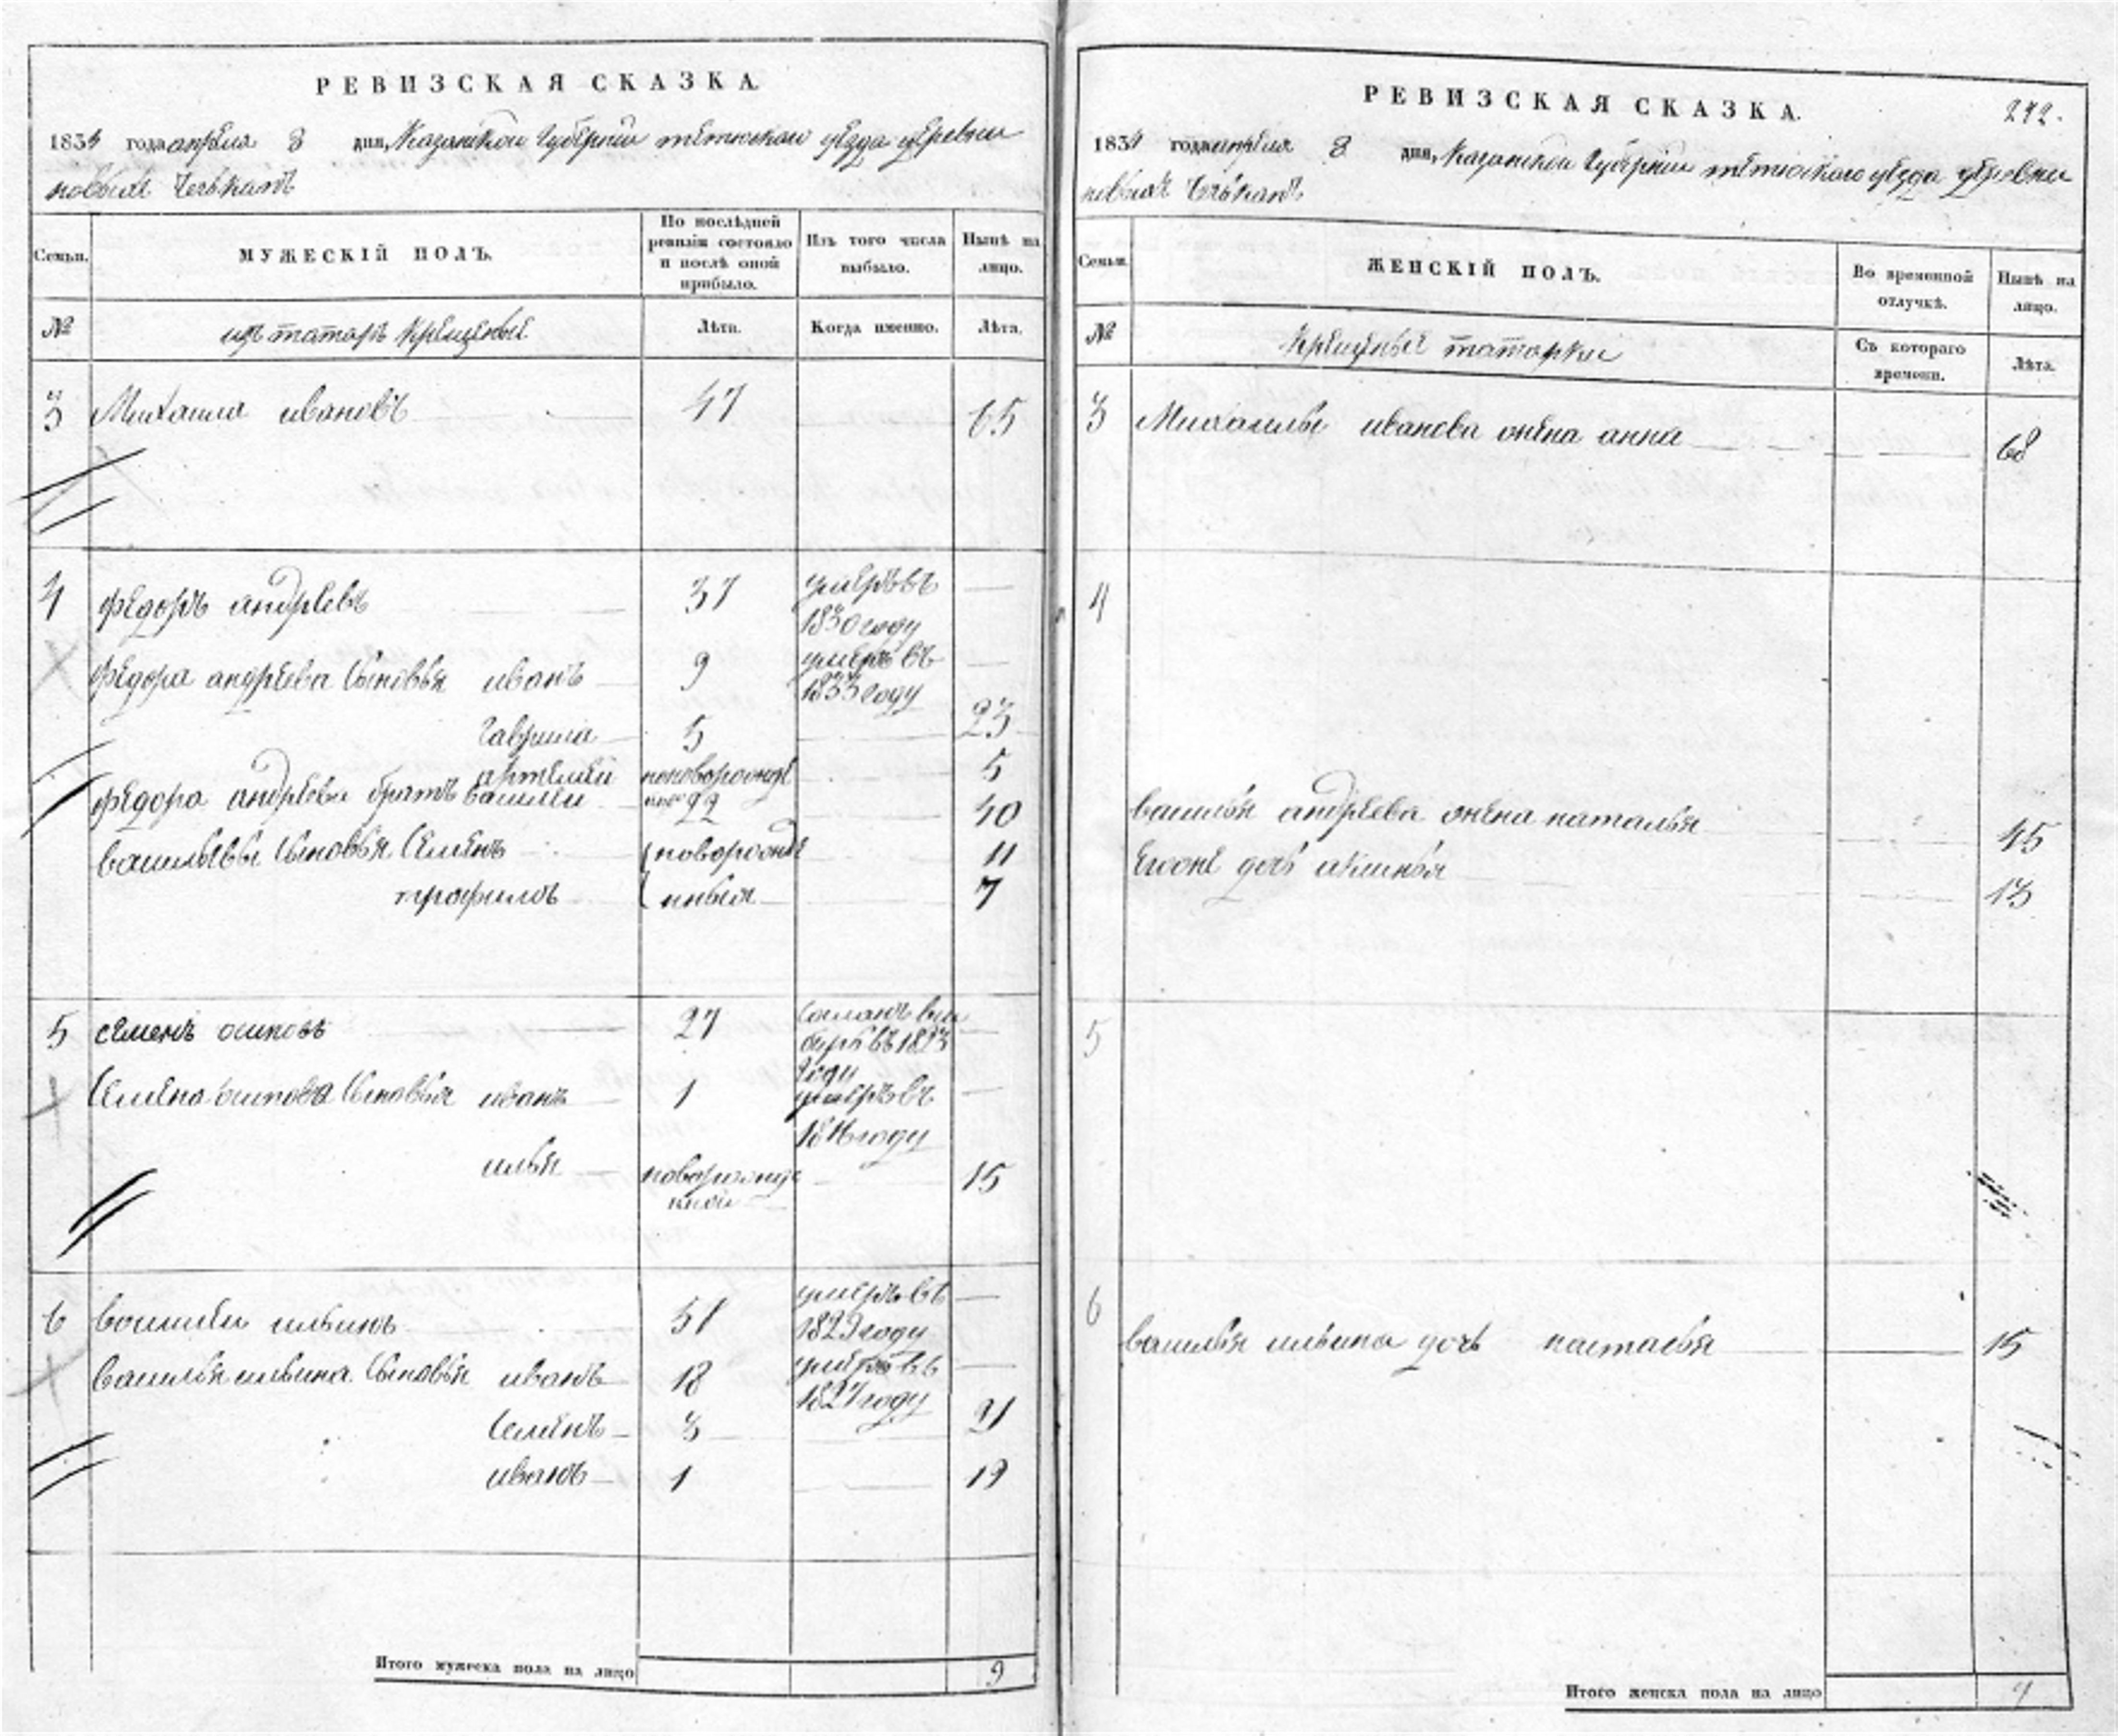 РЕВИЗСКАЯ СКАЗКА.
1834 года апреля 8 дня, Казанской губернии тетюскаи уезда деревни
новыхъ Чечкапъ
Семьи.
МУЖЕСКІЙ ПОЛЪ.
По послѣдней ревизіи состояло и послѣ оной прибыло.
Изъ того числа выбыло.
Нынѣ на лицо.
№
изъ татаръ крещеные
Лѣта.
Когда именно.
Лѣта.
3 Михаила ивановъ 47 65
4 федоръ андреевъ 37 умеръ въ 1830 году
федора андреева сыновья иванъ 9 умеръ въ 1833 году
гаврила 5 23
артемей новорожде 5
федора андреева братъ василеи 22 40
васильевы сыновья семенъ новорожде 11
трофимъ нныя 7
5 семенъ осиповъ 27 сосланъ въ си бирь въ 1823 году
семена осипова сыновья иванъ 1 умеръ въ 1816 году
илья новорожде нной 15
6 василеи ильинъ 51 умеръ въ 1829 году
василья ильина сыновья иванъ 18 умеръ въ 1827 году
семенъ 3 21
иванъ 1 19
Итого мужеска пола на лицо 9
РЕВИЗСКАЯ СКАЗКА. 272.
1834 года апреля 8 дня, Казанской губернии тетюскаго уезда деревни
новыхъ Чечкапъ
Семьи.
ЖЕНСКІЙ ПОЛЪ.
Во временной отлучкѣ.
Нынѣ на лицо.
№
крещеные татарки
Съ котораго времени.
Лѣта.
3 Михаилы иванова жена анна 68
4
василья андреева жена наталья 45
Ево же дочь аксинья 13
5
6
василья ильина дочь настасья 15
Итого женска пола на лицо 4